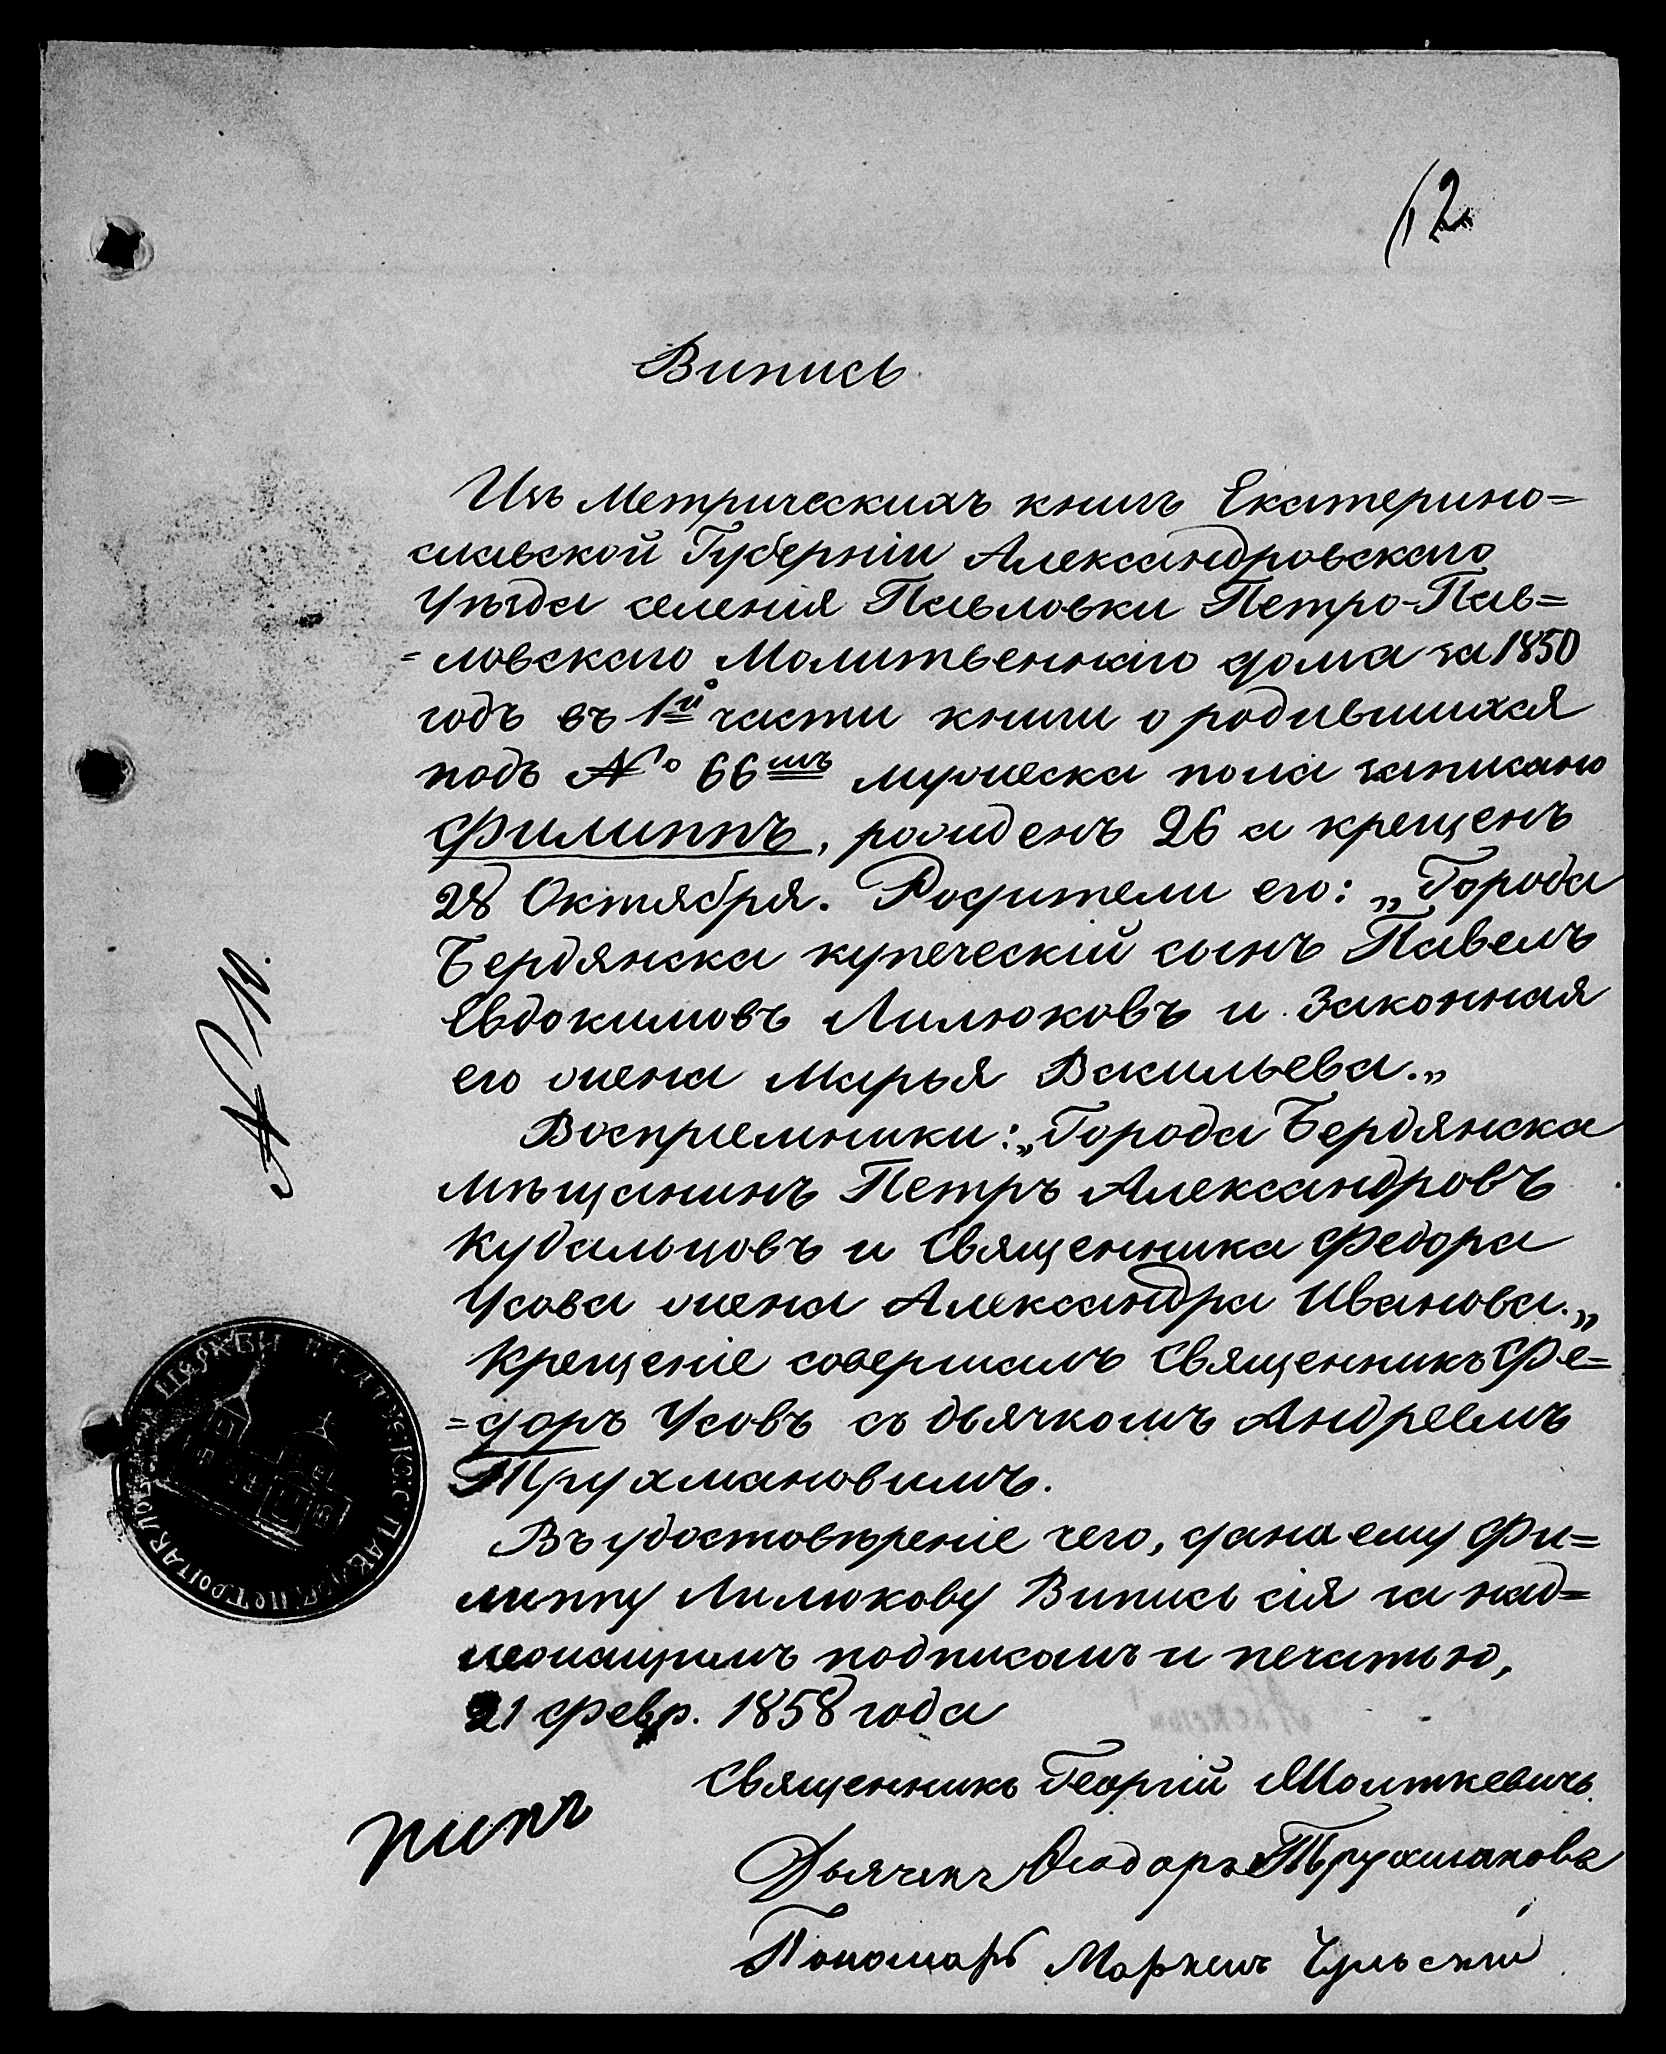 12
Випись
Изъ Метрическихъ книгъ Екатерино=
славской Губерніи Александровскаго
Уѣзда селенія Павловки Петро-Пав=
=ловскаго Молитвеннаго дома за 1850
годъ въ 1й части книги о родившихся
подъ № 66мъ мужеска пола записано
Филиппъ, рожденъ 26 а крещенъ
28 Октября. Родители его: „Города
Бердянска купеческій сынъ Павелъ
Евдокимовъ Лилюковъ и законная
его жена Марья Васильева.„
Восприемники: „Города Бердянска
Мѣщанинъ Петръ Александровъ
Кудальцовъ и Священника Федора
Усова жена Александра Иванова.„
Крещеніе совершалъ Священникъ Фе=
=доръ Усовъ съ дьячкомъ Андреемъ
Трухмановимъ.
Въ удостовѣреніе чего, дана ему Фи=
липпу Лилюкову Випись сія за над=
лежащимъ подписомъ и печатью,
21 февр. 1858 года
Священникъ Георгій
Дьячекъ Ѳеодоръ Трухмановъ
Пономарь